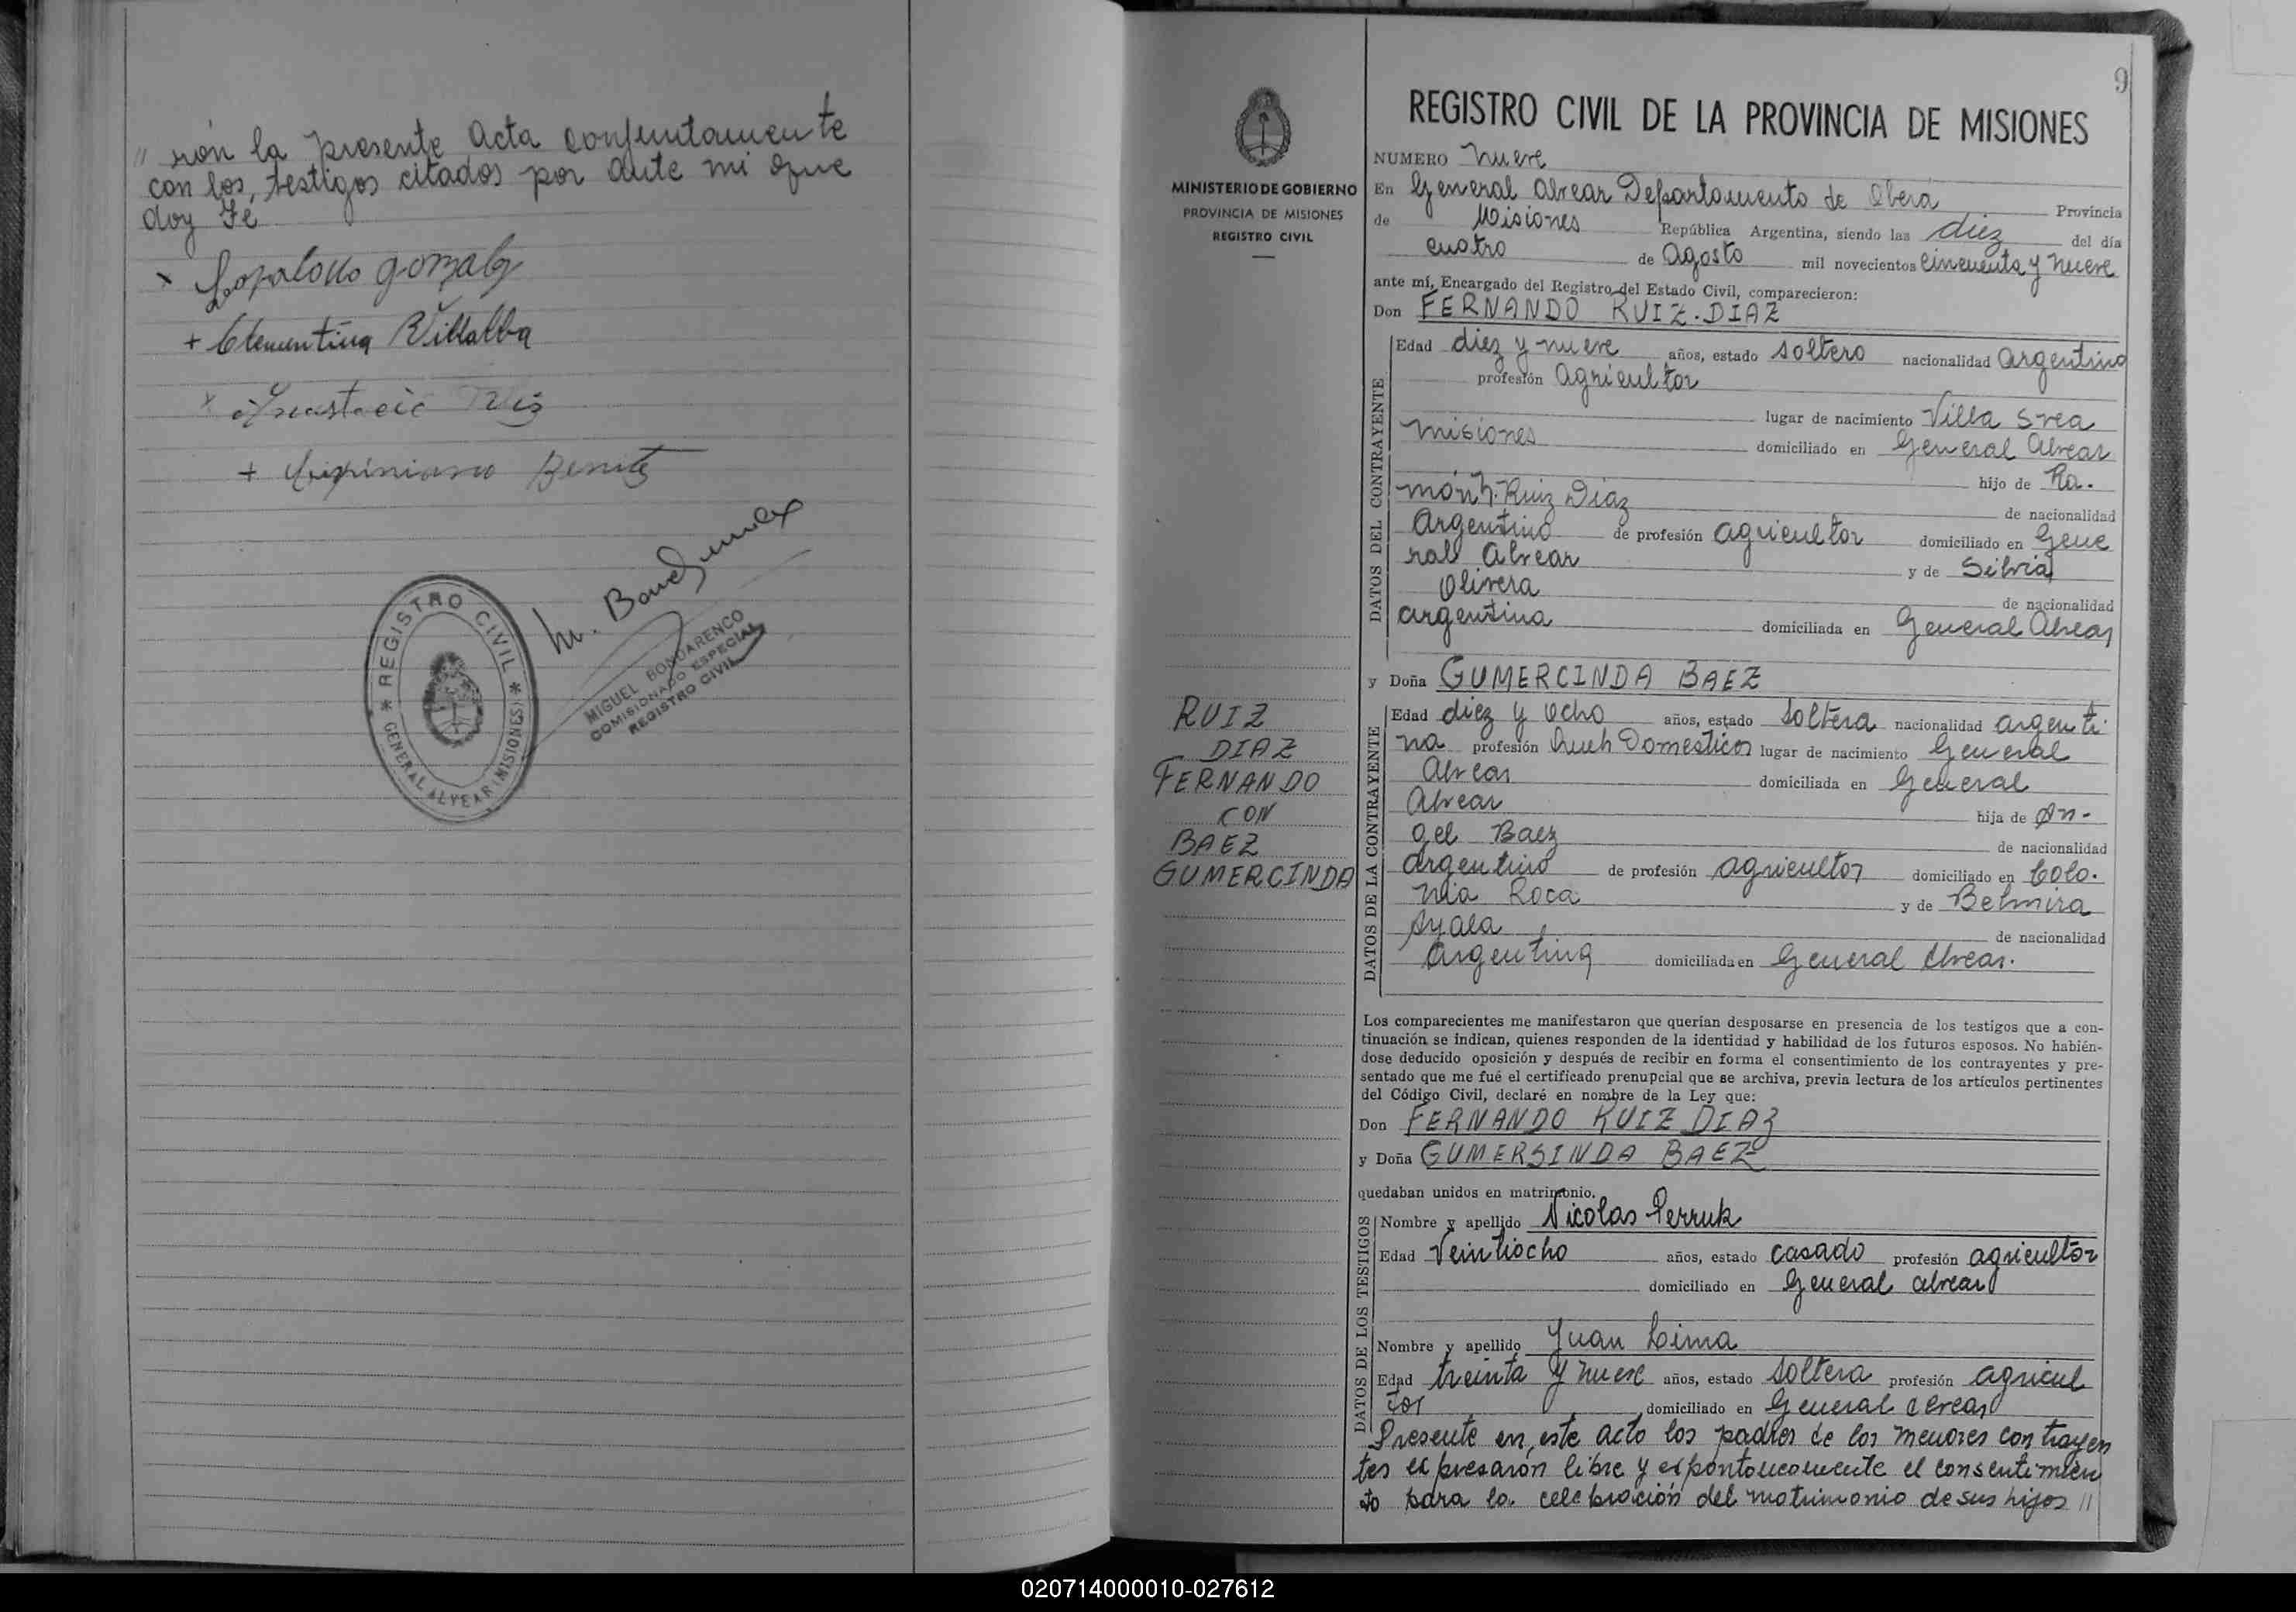 " rón la presente acta conjuntamente
con los testigos citados por ante mi que
doy Fé
+ Clementina Villalba
+ Crispiniano Benitez
REGISTRO CIVIL
GENERAL ALVEAR (MISIONES)
MIGUEL BONDARENCO
COMISIONADO ESPECIAL
REGISTRO CIVIL
9
MINISTERIO DE GOBIERNO
PROVINCIA DE MISIONES
REGISTRO CIVIL
RUIZ
DIAZ
FERNANDO
CON
BAEZ
GUMERCINDA
REGISTRO CIVIL DE LA PROVINCIA DE MISIONES
NUMERO nueve
En General Alvear Departamento de Oberá Provincia
de Misiones República Argentina, siendo las diez del día
cuatro de Agosto mil novecientos cincuenta y nueve
ante mí, Encargado del Registro del Estado Civil, comparecieron:
Don FERNANDO RUIZ-DIAZ
DATOS DEL CONTRAYENTE
Edad diez y nueve años, estado soltero nacionalidad argentino
profesión agricultor
lugar de nacimiento Villa Svea
misiones domiciliado en General Alvear
hijo de Ra-
món Ruiz Diaz de nacionalidad
Argentino de profesión agricultor domiciliado en Gene
rall Alvear y de Silvia
Olivera de nacionalidad
argentina domiciliada en General Alvear
y Doña GUMERCINDA BAEZ
DATOS DE LA CONTRAYENTE
Edad diez y ocho años, estado soltera nacionalidad argenti-
na profesión Domesticos lugar de nacimiento General
Alvear domiciliada en General
Alvear hija de An-
gel Baez de nacionalidad
argentino de profesión agricultor domiciliado en Colo-
nia Roca y de Belmira
Ayala de nacionalidad
Argentina domiciliada en General Alvear.
Los comparecientes me manifestaron que querían desposarse en presencia de los testigos que a con-
tinuación se indican, quienes responden de la identidad y habilidad de los futuros esposos. No habién-
dose deducido oposición y después de recibir en forma el consentimiento de los contrayentes y pre-
sentado que me fué el certificado prenupcial que se archiva, previa lectura de los artículos pertinentes
del Código Civil, declaré en nombre de la Ley que:
Don FERNANDO RUIZ DIAZ
y Doña GUMERSINDA BAEZ
quedaban unidos en matrimonio.
DATOS DE LOS TESTIGOS
Nombre y apellido Nicolas Perruk
Edad Veintiocho años, estado casado profesión agricultor
domiciliado en General Alvear
Nombre y apellido Juan Lima
Edad treinta y nueve años, estado soltera profesión agricul
tor domiciliado en General Alvear
Presente en este acto los padres de los menores contrayen
tes expresarón libre y espontaneamente el consentimien
to para la celebración del matrimonio de sus hijos "
020714000010-027612